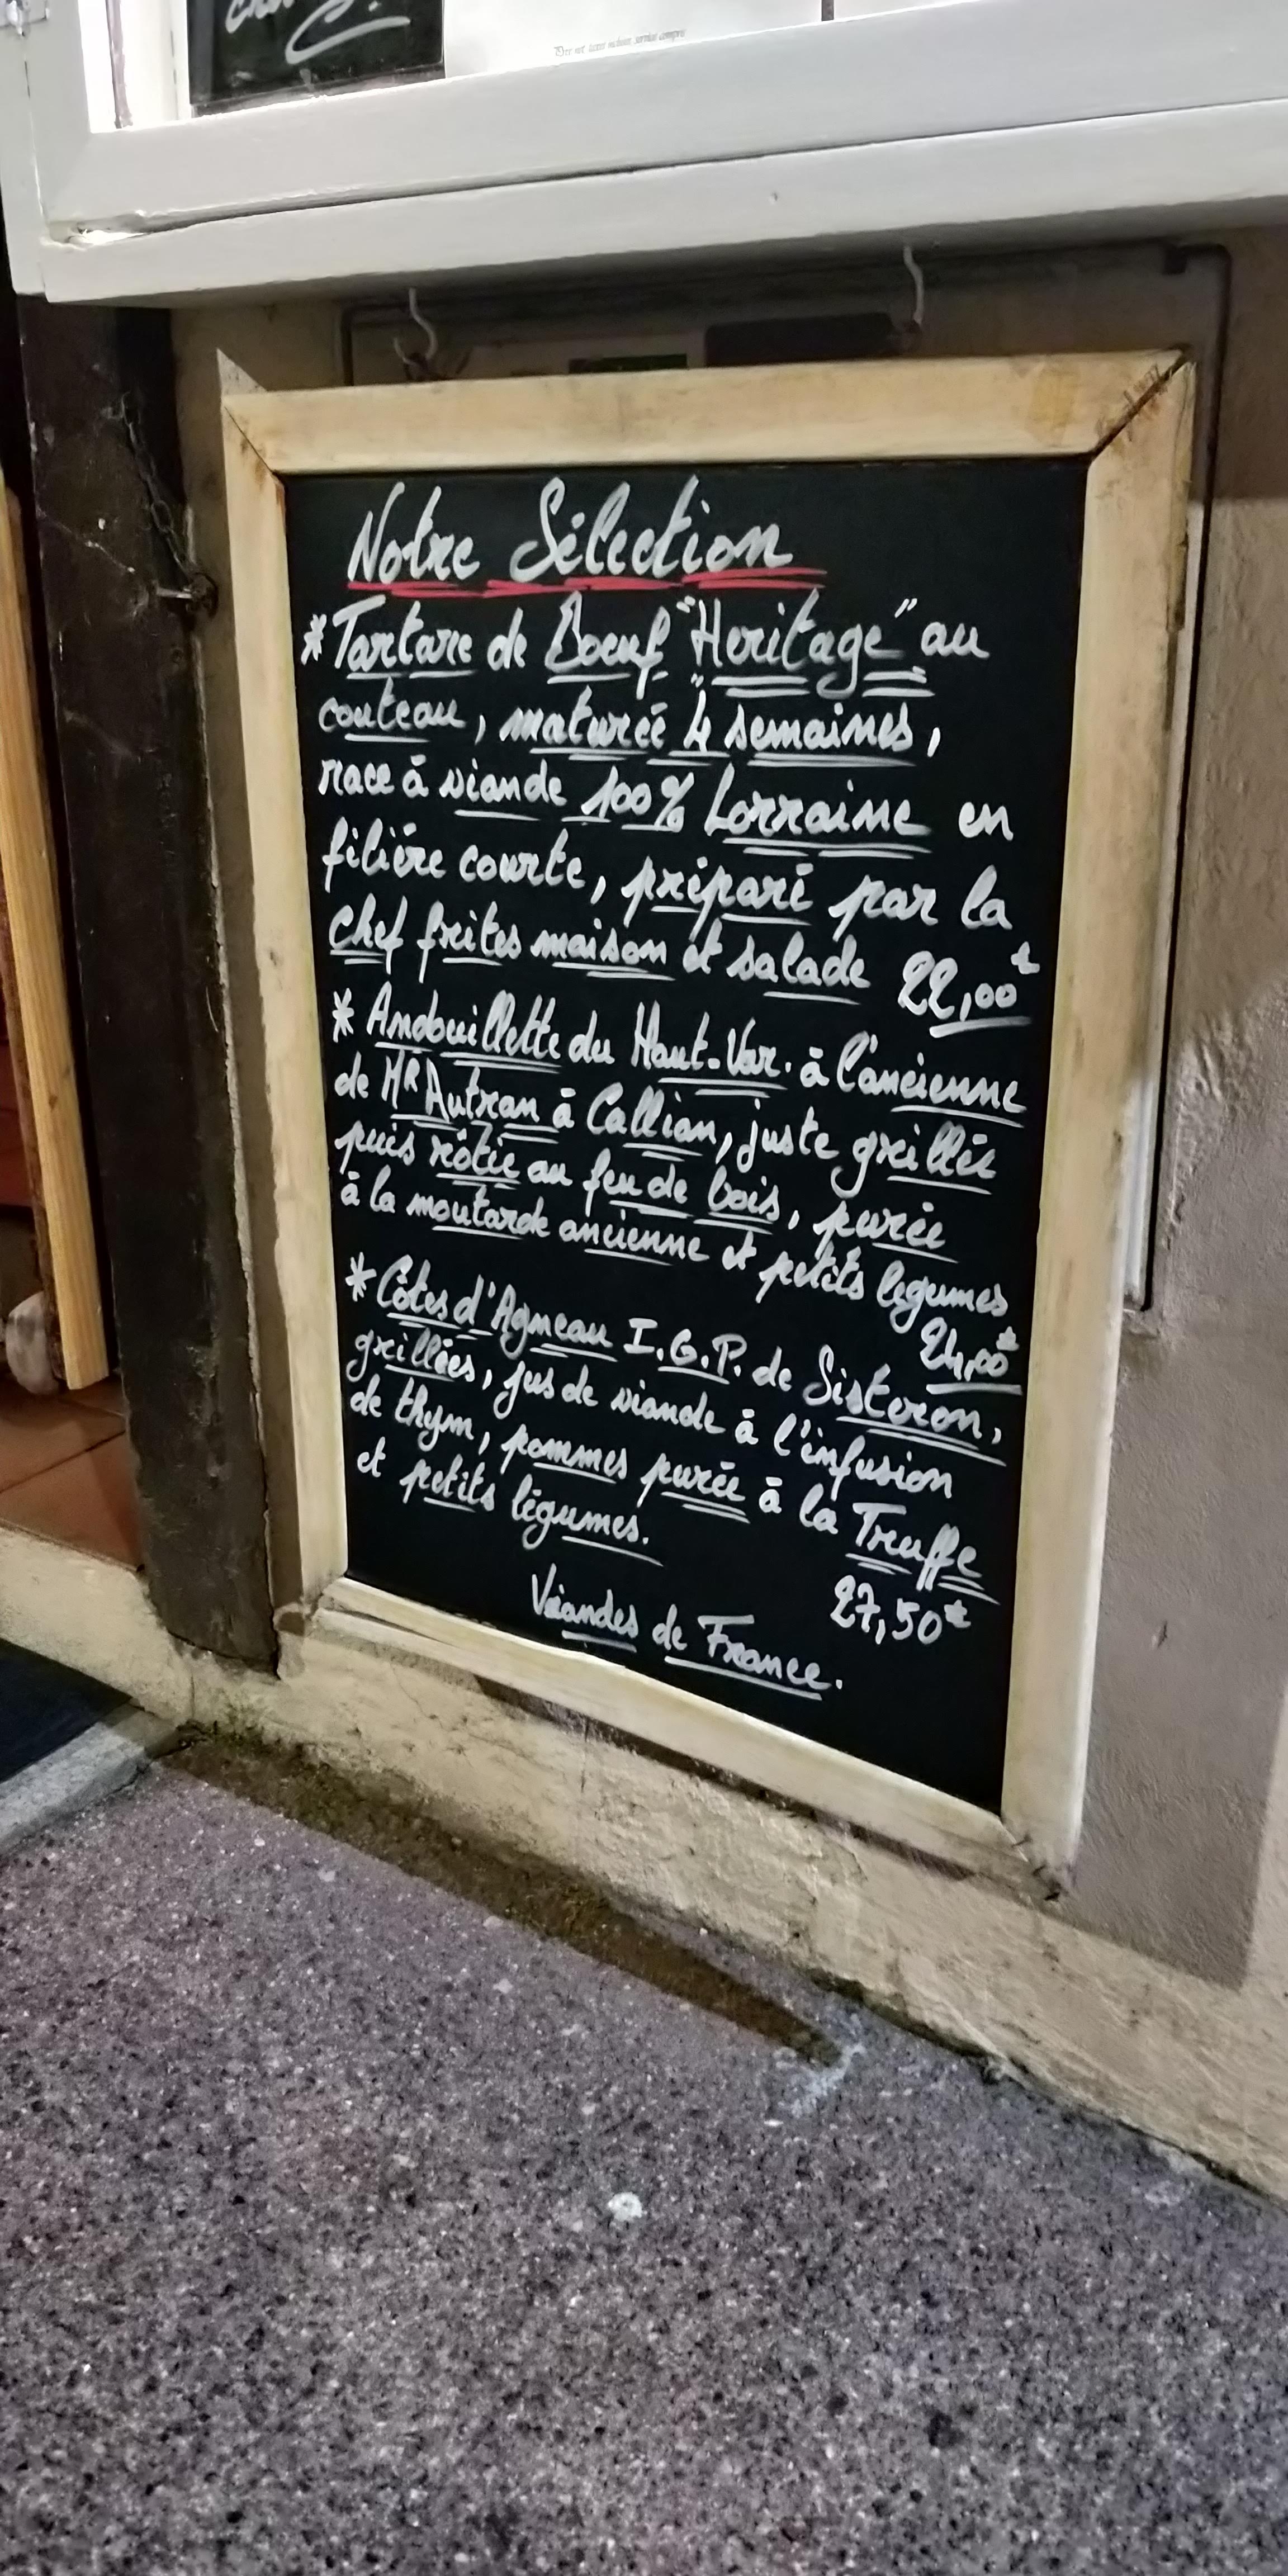 Prix net taxes incluses, service compris
Notre Sélection
*Tartare de Boeuf "Heritage" au
couteau, maturée "4 semaines,
race à viande 100% Lorraine en
filière courte, préparé par la
Chef frites maison et salade 22,00€
* Andouillette du Haut-Var. à l'ancienne
de MR Autran à Callian, juste grillée
puis rôtie au feu de bois, purée
à la moutarde ancienne et petits légumes
24,00€
* Côtes d'Agneau I.G.P. de Sisteron,
grillées, jus de viande à l'infusion
de thym, pommes purée à la Truffe
et petits légumes.
27,50€
Viandes de France.